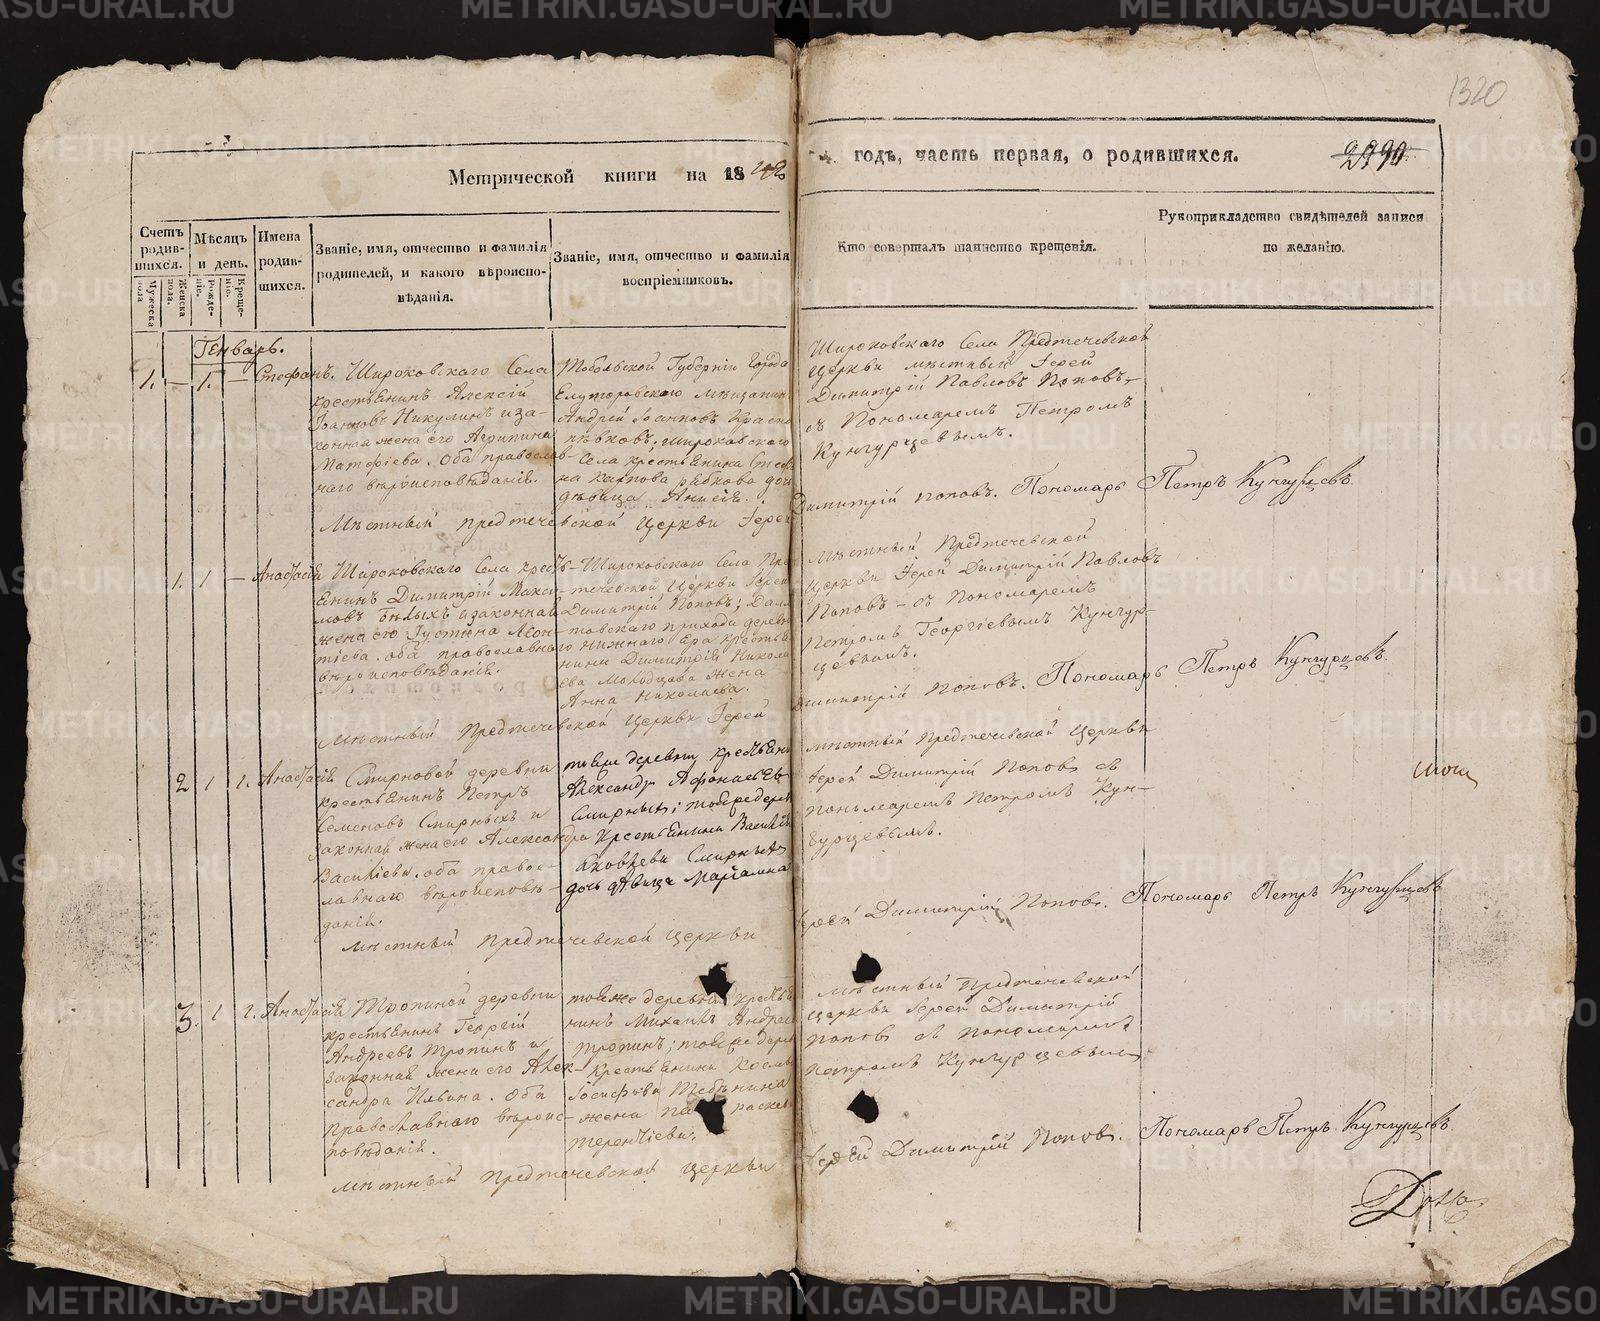 1320
Метрической книги на 1842
годъ, часть первая, о родившихся.
2990
Счетъ родившихся.
Мужеска пола
Женска пола.
Мѣсяцъ и день.
Рожденіе.
Крещеніе.
Имена родившихся.
Званіе, имя, отчество и фамилія
родителей, и какого вѣроиспо-
вѣданія.
Званіе, имя, отчество и фамилія
воспріемниковъ.
Кто совершалъ таинство крещенія.
Рукоприкладство свидѣтелей записи
по желанію.
Генварь.
1. — 1. — Стефанъ.
Широковскаго Села
крестьянинъ Алексій
Іоанновъ Никулинъ и за-
конная жена его Агрипина
Матфіева. Оба православ-
наго вѣроисповѣданія.
Тобольской Губерніи Города
Елуторовскаго мѣщанин
Андрей Іоанновъ Красно
пѣвковъ. Широковскаго
Села крестьянина Стефа
на Карпова рябкова доч
дѣвица Анисія.
Широковскаго Села Предтечевской
Церкви мѣстный Іерей
Димитрій Павловъ Поповъ,
съ Пономаремъ Петромъ
Кунгурцевымъ.
Мѣстный предтечевской Церкви Іерей Димитрій Поповъ. Пономарь Петръ Кунгурцевъ.
1. 1 — Анастасія
Широковскаго Села крест-
янинъ Димитрій Макси-
мовъ Бѣлыхъ и законная
жена его Іустина Леон-
тіева. оба православнаго
вѣроисповѣданія.
Широковскаго Села Пред
течевской Церкви Іерей
Димитрій Поповъ; Дал
товскаго прихода деревн
Нижнаго Яра крестья
нина Димитрія Никола
ева Молодцова жена
Анна Николаева.
Мѣстный Предтечевской
Церкви Іерей Димитрій Павловъ
Поповъ — съ Пономаремъ
Петромъ Георгіевымъ Кунгур-
цевымъ.
Мѣстный Предтечевской Церкви Іерей Димитрій Поповъ. Пономарь Петръ Кунгурцевъ.
2 1 1. Анастасія
Смирновой деревни
крестьянинъ Петръ
Семеновъ Смирныхъ и
законная жена его Александра
Васильева. оба правос-
лавнаго вѣроисповѣ-
данія.
тояже деревни крестьянин
Александръ Афонасьевъ
Смирныхъ; тояже дерев
Крестьянина Василія
Яковлева Смирныхъ
дочь дѣвица Маріамна
Мѣстный Предтечевской Церкви
Іерей Димитрій Поповъ съ
пономаремъ Петромъ Кун-
гурцевымъ.
Мѣстный Предтечевской Церкви Іерей Димитрій Поповъ. Пономарь Петръ Кунгурцевъ
3. 1 1. Анастасія
Тропиной деревни
крестьянинъ Георгій
Андреевъ Тропинъ и
законная жена его Алек-
сандра Ильина. Оба
православнаго вѣроис-
повѣданія.
тояже деревни крестья
нинъ Михаилъ Андрее
Тропинъ; тояже дерев
крестьянина Козмы
Іосифова Тебѣнина
жена Параскев
Терентіева.
Мѣстный Предтечевской
Церкви Іерей Димитрій
Поповъ съ пономаремъ
Петромъ Кунгурцевымъ
Мѣстный Предтечевской Церкви Іерей Димитрій Поповъ. Пономарь Петръ Кунгурцевъ.
METRIKI.GASO-URAL.RU